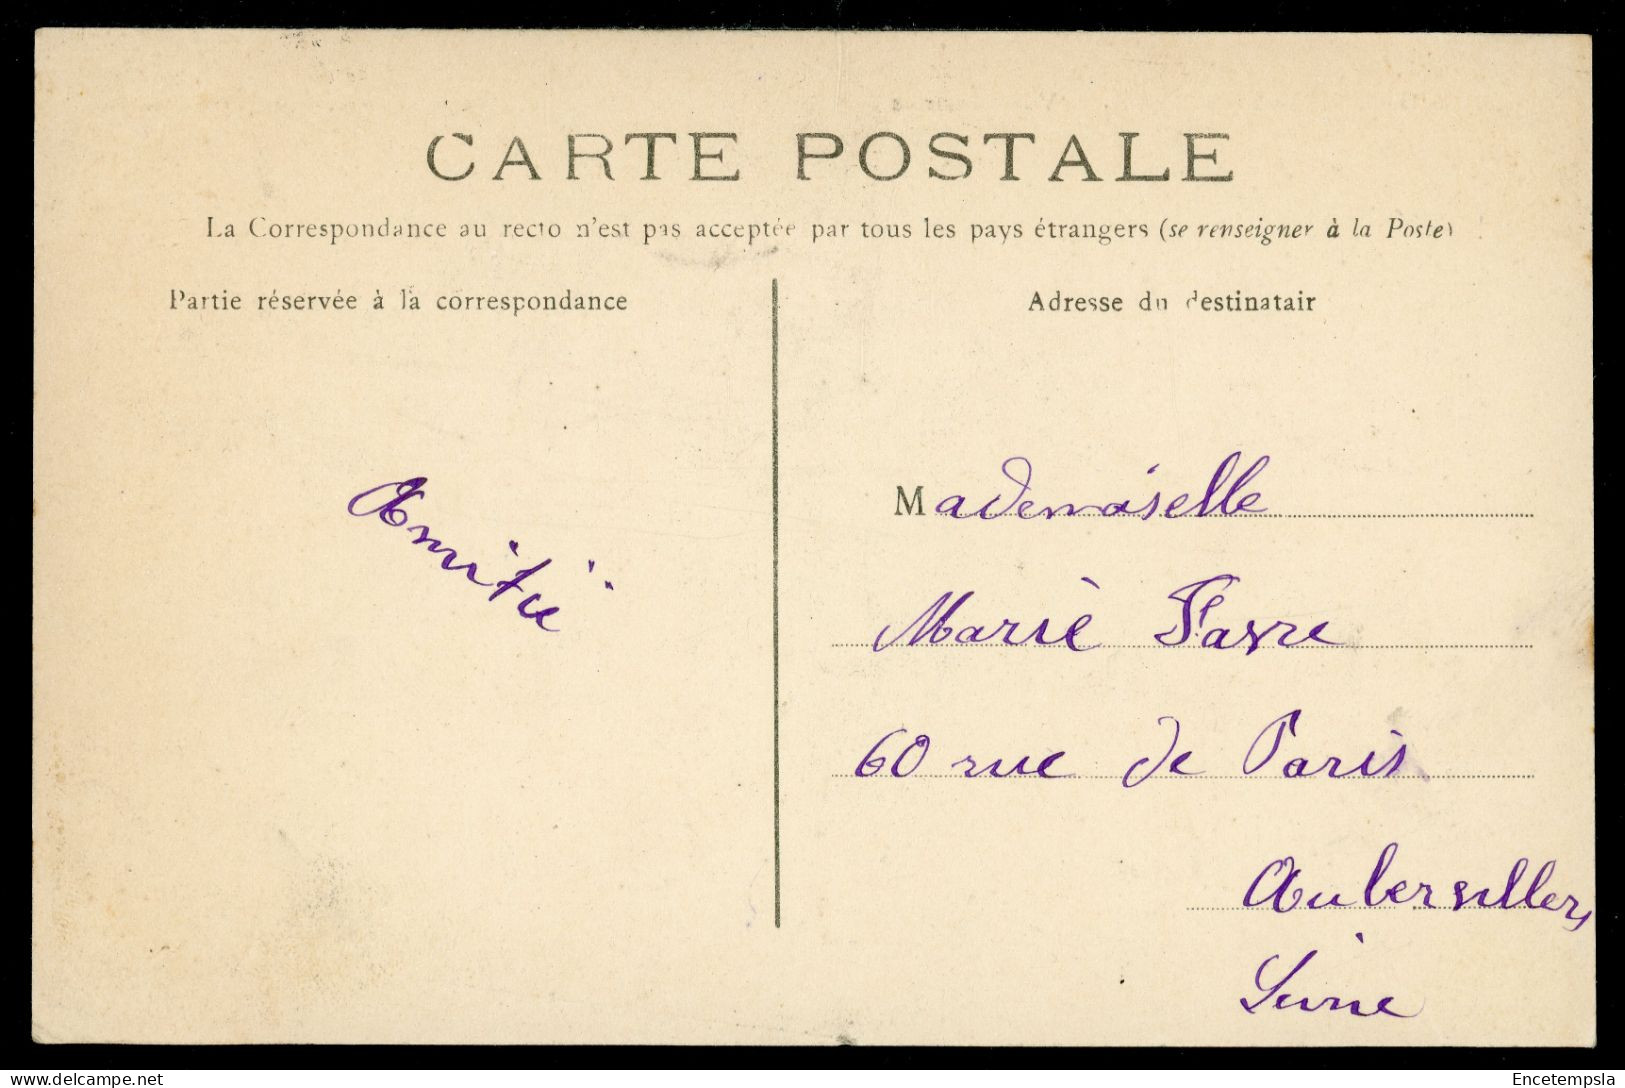 CARTE POSTALE
La Correspondance au recto n'est pas acceptée par tous les pays étrangers (se renseigner à la Poste)
Partie réservée à la correspondance
Adresse du destinatair
Amitié
Mademoiselle
Marie Favre
60 rue de Paris
Aubervillers
Seine
Encetempsla